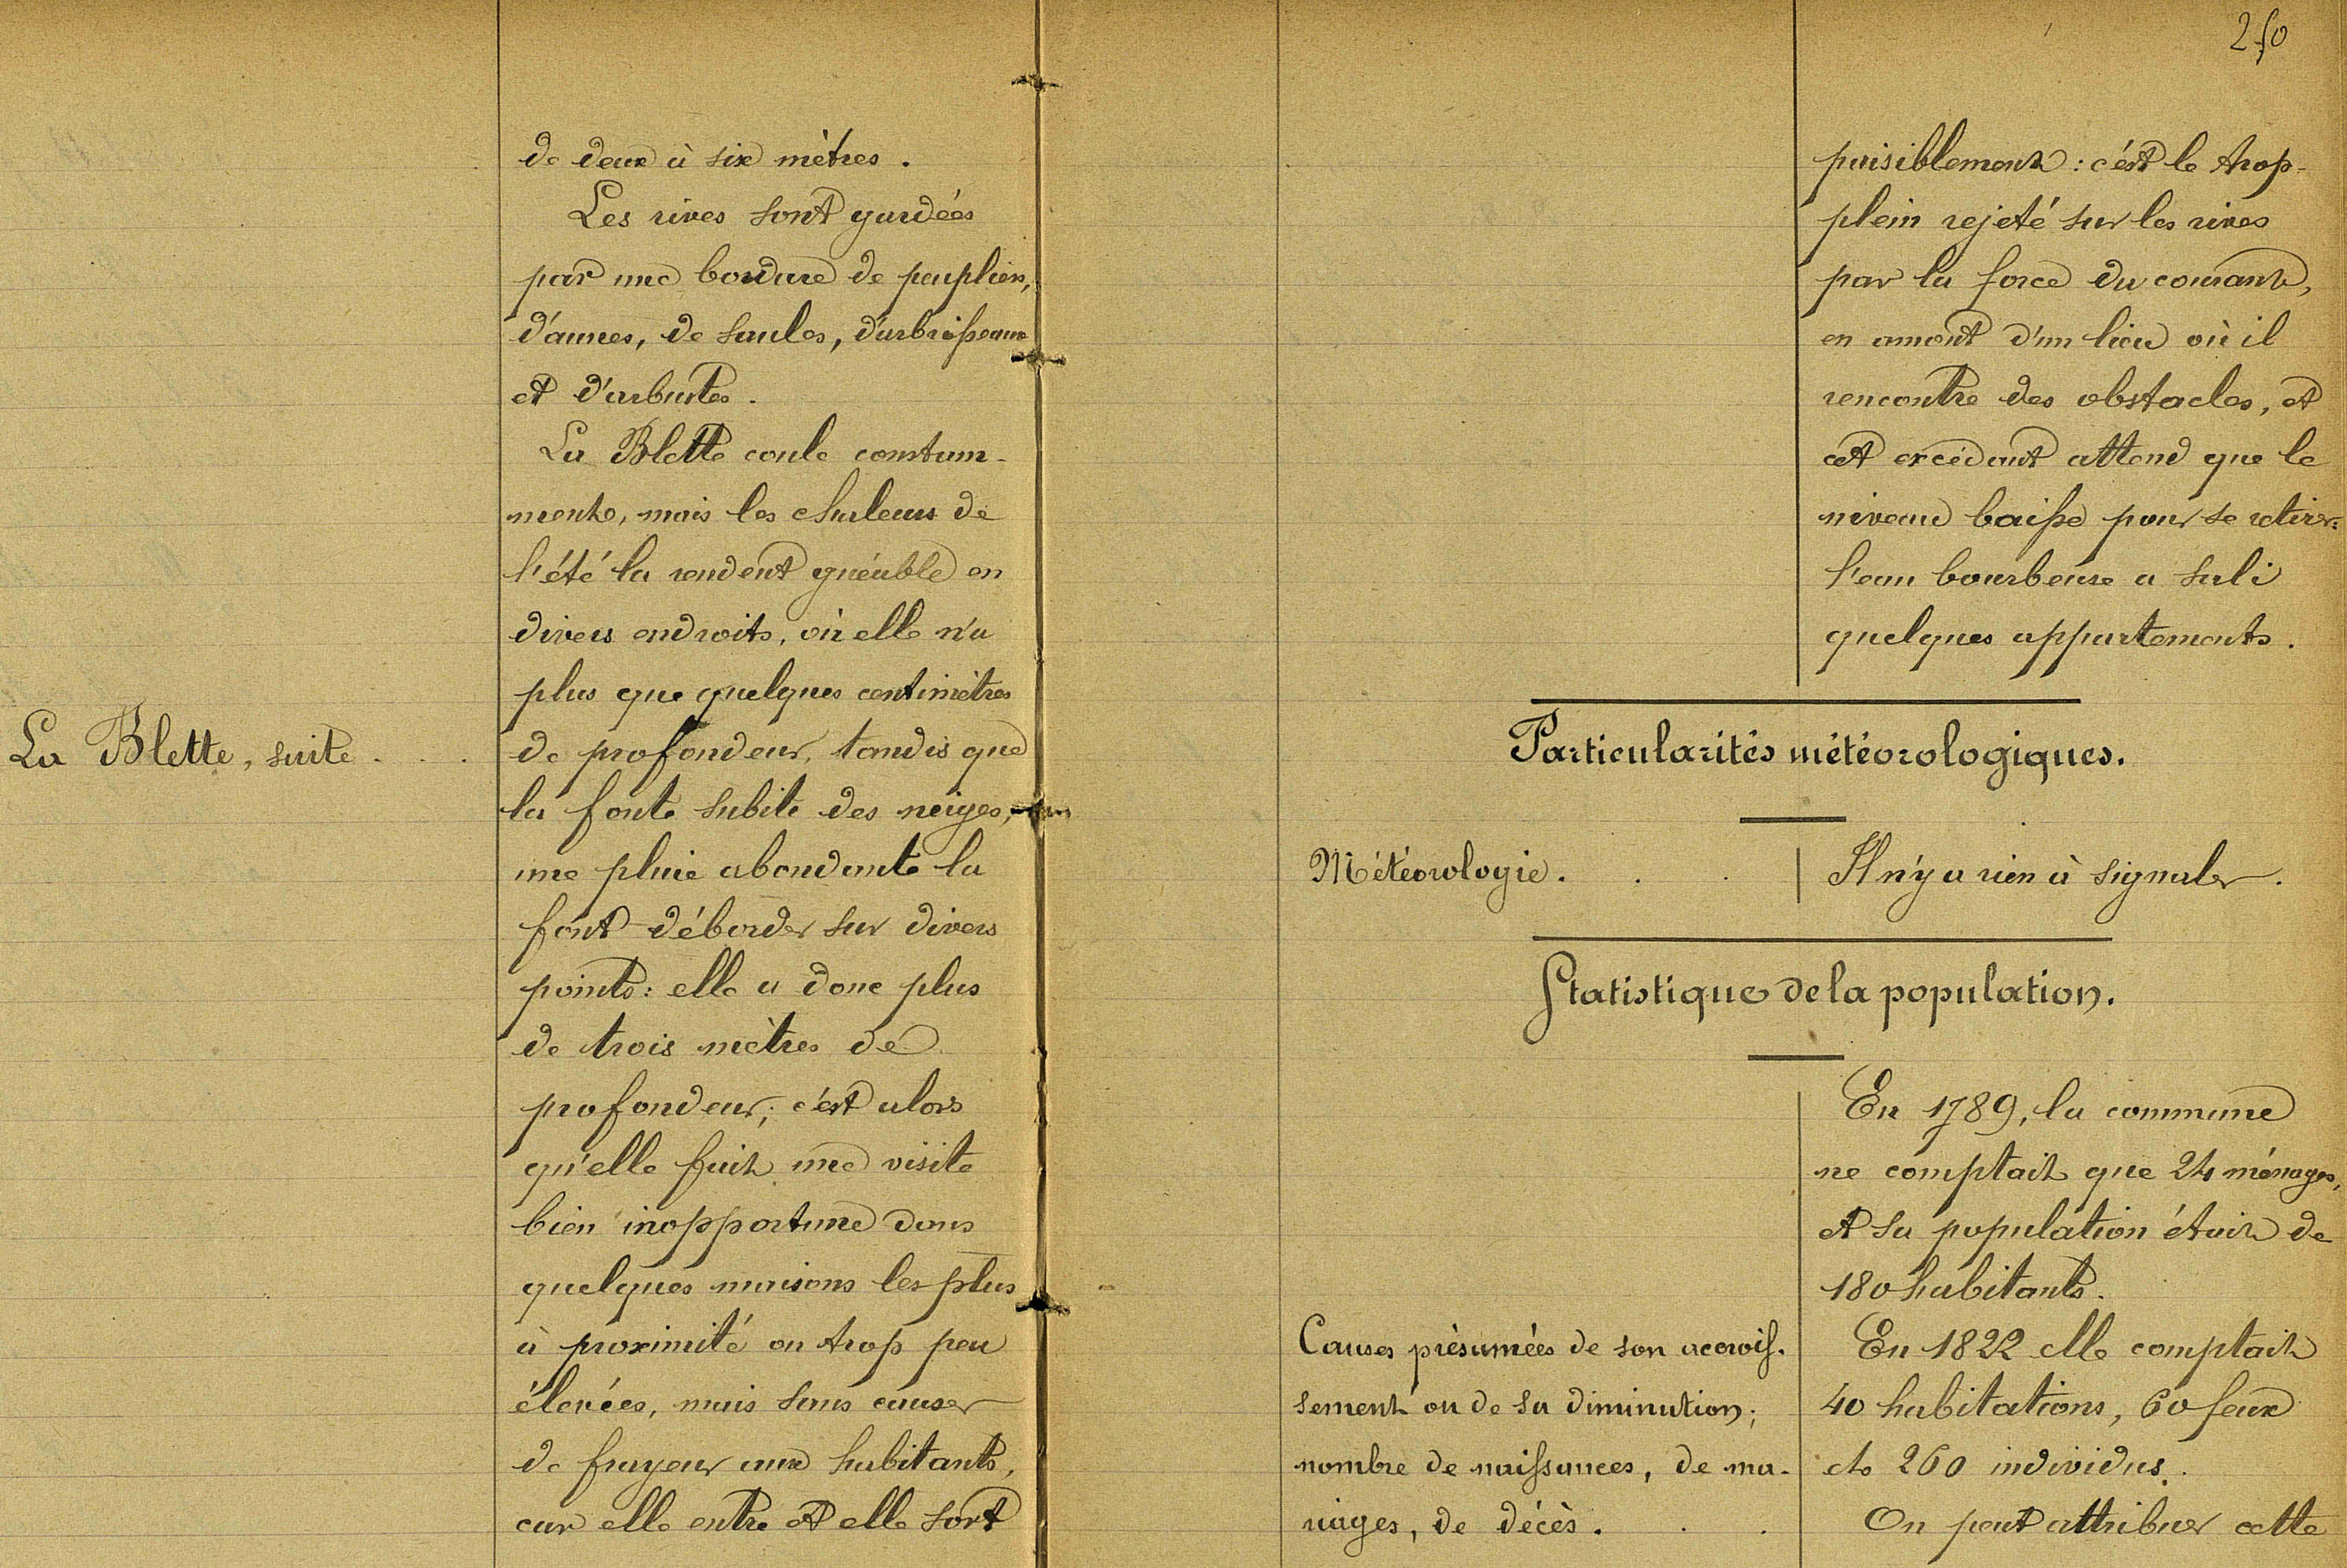 La Blette, suite . . .
de deux à six mètres.
Les rives sont gardées
par une bordure de peupliers,
d'aunes, de saules, d'arbrisseaux
et d'arbustes.
La Blette coule constam-
ment, mais les chaleurs de
l'été la rendent guéable en
divers endroits, où elle n'a
plus que quelques centimètres
de profondeur, tandis que
la fonte subite des neiges,
une pluie abondante la
font déborder sur divers
points: elle a donc plus
de trois mètres de
profondeur; c'est alors
qu'elle fait une visite
bien inopportune dans
quelques maisons les plus
à proximité ou trop peu
élevées, mais sans causer
de frayeur aux habitants,
car elle entre et elle sort
250
paisiblement: c'est le trop-
plein rejeté sur les rives
par la force du courant,
en amont d'un lieu où il
rencontre des obstacles, et
cet excédant attend que le
niveau baisse pour se retirer:
l'eau bourbeuse a sali
quelques appartements.
Particularités météorologiques.
Météorologie. . . Il n'y a rien à signaler.
Statistique de la population.
En 1789, la commune
ne comptait que 24 ménages,
et sa population était de
180 habitants.
Causes présumées de son accrois-
sement ou de sa diminution;
nombre de naissances, de ma-
riages, de décès. . .
En 1822 elle comptait
40 habitations, 60 feux
et 260 individus.
On peut attribuer cette